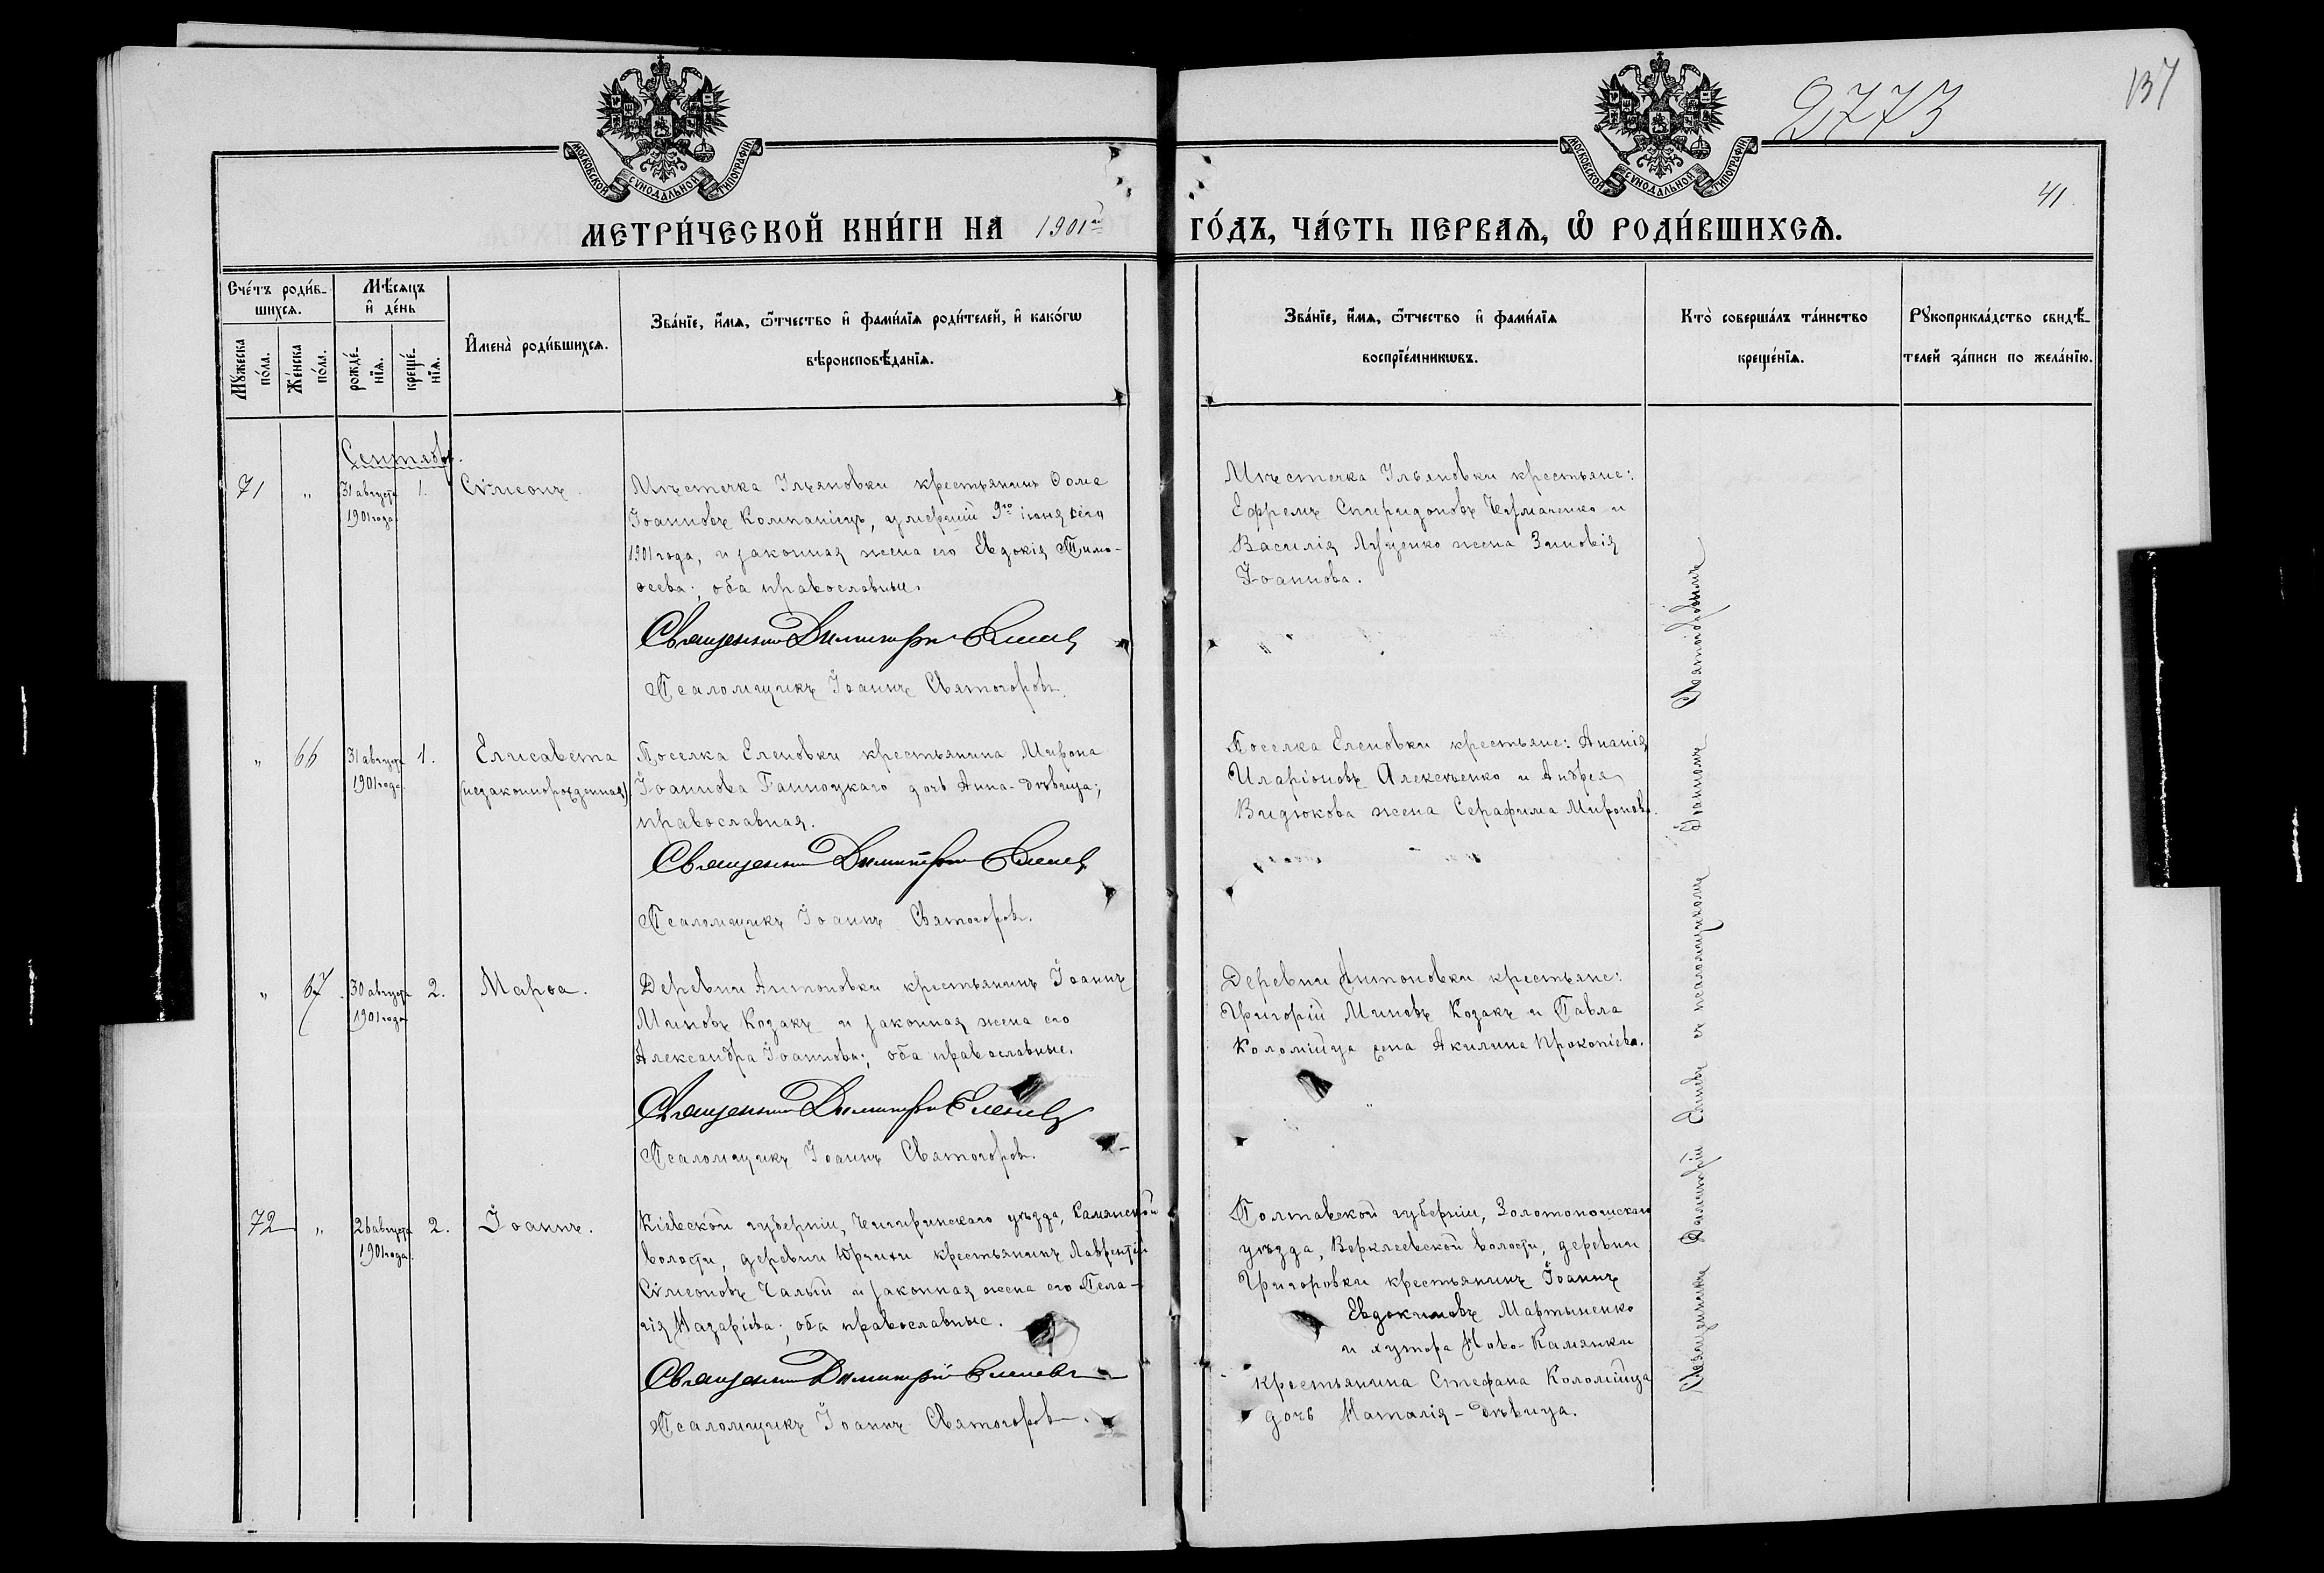 МОСКОВСКОЙ СѴНОДАЛЬНОЙ ТИПОГРАФІИ
МОСКОВСКОЙ СѴНОДАЛЬНОЙ ТИПОГРАФІИ
2773
137
41
МЕТРИ́ЧЕСКОЙ КНИ́ГИ НА 1901й
ГО́ДЪ, ЧА́СТЬ ПЕРВАѦ, Ѽ РОДИ́ВШИХСѦ.
Сче́тъ роди́в-
шихсѧ.
Мѣ́сѧцъ
и҆ де́нь
Мꙋжеска
по́ла.
Же́нска
по́ла.
рожде́-
нїѧ.
креще́-
нїѧ.
И҆мена̀ роди́вшихсѧ.
Зва́нїе, и҆́мѧ, ѻ҆́тчество и҆ фами́лїѧ роди́телей, и҆ како́гѡ
вѣроисповѣ́данїѧ.
Зва́нїе, и҆́мѧ, ѻ҆́тчество и҆ фами́лїѧ
воспрїе́мникѡвъ.
Кто̀ соверша́лъ та́инство
креще́нїѧ.
Рꙋкоприкла́дство свидѣ́-
телей за́писи по жела́нїю.
Сентябр.
71 " 31 августа 1. Сѵмеонъ.
1901 года.
Мѣстечка Ильяновки крестьянинъ Ѳома
Іоанновъ Компаніецъ, умершій 9го іюня сего
1901 года, и законная жена его Евдокія Тимо-
ѳеева; оба православные.
Священникъ Димитрій Еленевъ
Псаломщикъ Іоаннъ Святогоровъ.
Мѣстечка Ильяновки крестьяне:
Ефремъ Спиридоновъ Чермаченко и
Василія Луценко жена Зиновія
Іоаннова.
" 66 31 августа 1. Елисавета
1901 года. (незаконнорожденная)
Поселка Еленовки крестьянина Мирона
Іоаннова Ганноцкаго дочь Анна-дѣвица;
православная.
Священникъ Димитрій Еленевъ
Псаломщикъ Іоаннъ Святогоровъ.
Поселка Еленовки крестьяне: Ананія
Иларіоновъ Алексѣенко и Андрея
Видюкова жена Серафима Миронова.
" 67. 30 августа 2. Марѳа.
1901 года
Деревни Антоновки крестьянинъ Іоаннъ
Миновъ Козакъ и законная жена его
Александра Іоаннова; оба православные.
Священникъ Димитрій Еленевъ
Псаломщикъ Іоаннъ Святогоровъ.
Деревни Антоновки крестьяне:
Григорій Миновъ Козакъ и Павла
Коломійца жена Акилина Прокопіева.
72 " 26 августа 2. Іоаннъ.
1901 года.
Кіевской губерніи, Чигиринскаго уѣзда, Камянской
волости, деревни Юрчихи крестьянинъ Лаврентій
Сѵмеоновъ Чалый и законная жена его Пела-
гія Назаріева; оба православные.
Священникъ Димитрій Еленевъ
Псаломщикъ Іоаннъ Святогоровъ.
Полтавской губерніи, Золотоношскаго
уѣзда, Верклеевской волости, деревни
Григоровки крестьянинъ Іоаннъ
Евдокимовъ Мартыненко
и хутора Ново-Камянки
крестьянина Стефана Коломійца
дочь Наталія-дѣвица.
Священникъ Димитрій Еленевъ съ псаломщикомъ Іоанномъ Святогоровымъ